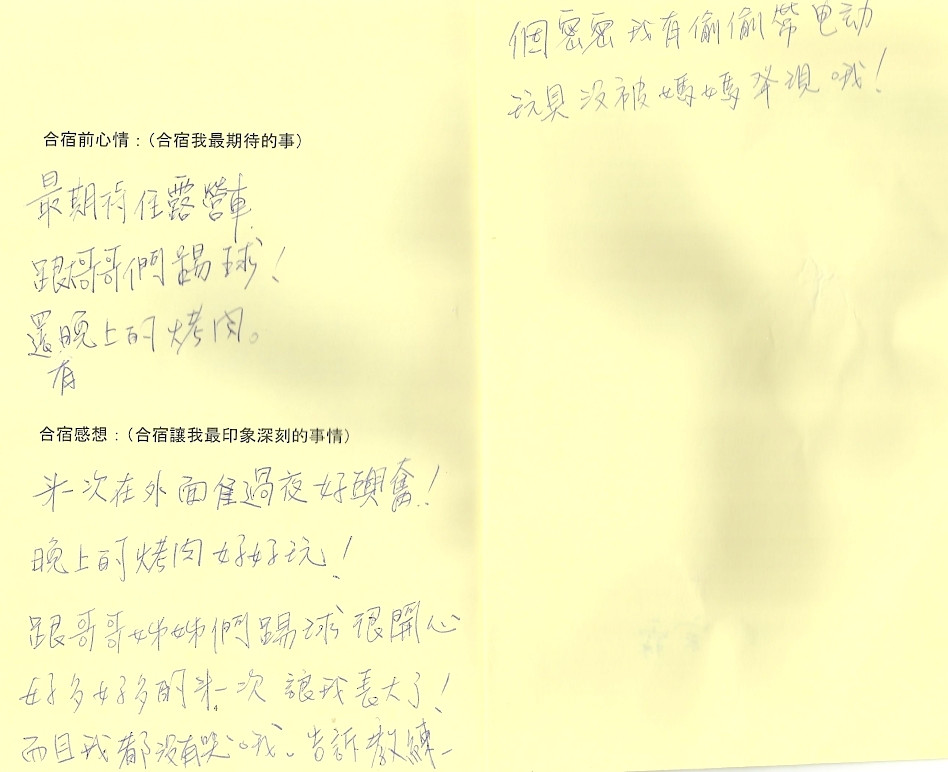 合宿前心情：（合宿我最期待的事）
最期待住露營車
跟哥哥們踢球！
還有晚上的烤肉。
合宿感想：（合宿讓我最印象深刻的事情）
第一次在外面過夜好興奮！
晚上的烤肉好好玩！
跟哥哥姊姊們踢球很開心
好多好多的第一次 讓我長大了！
而且我都沒有哭哦。告訴教練一
個密密我有偷偷帶电动
玩具沒被媽媽發現哦！